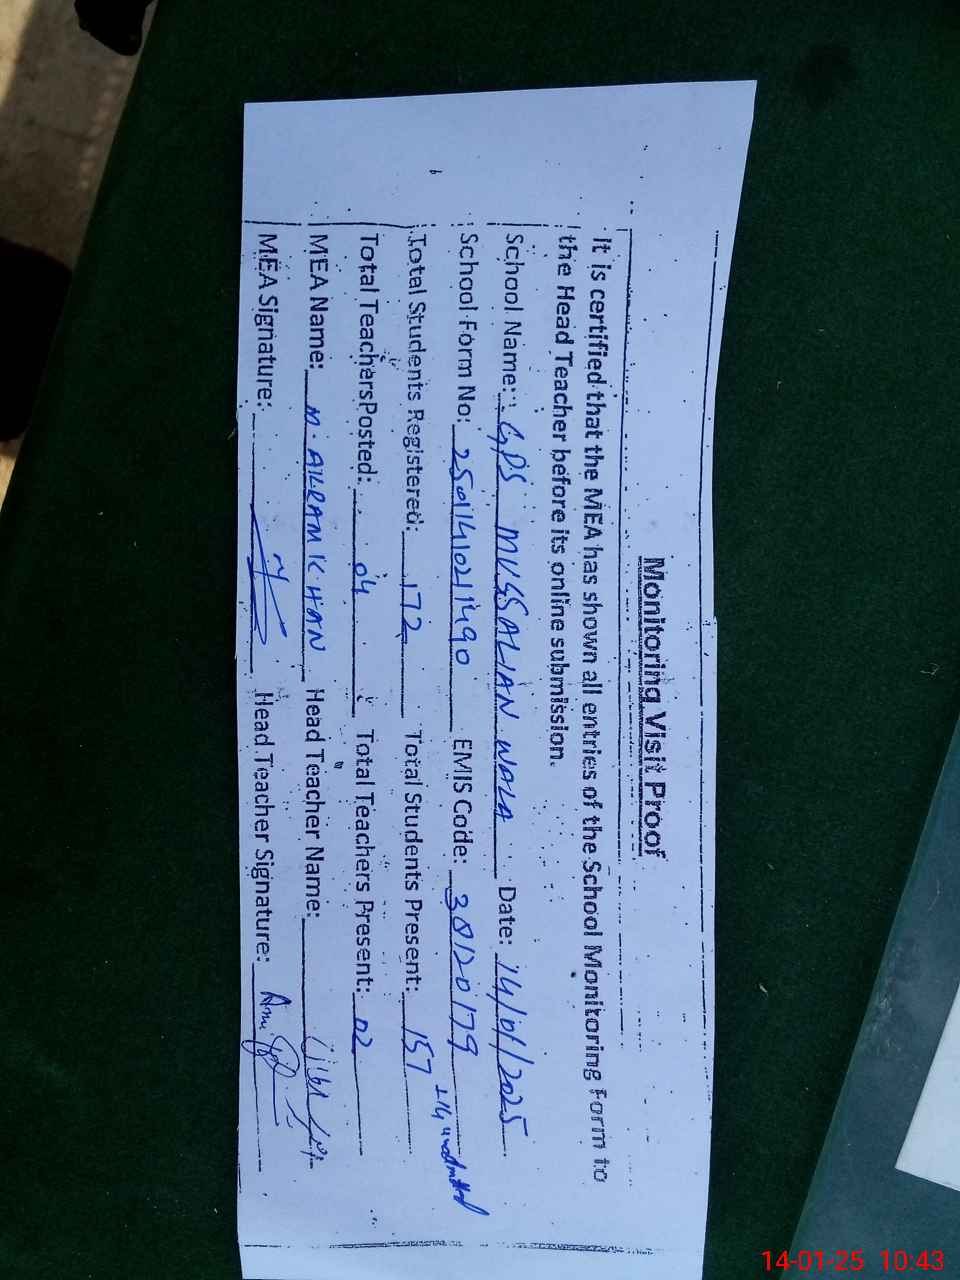 Monitoring Visit Proof
It is certified that the MEA has shown all entries of the School Monitoring Form to
the Head Teacher before its online submission.
School Name: GPS MUSSALIAN WALA Date: 14/01/2025
School Form No: 25011410211490 EMIS Code: 38120179
+14 unadmitted
Total Students Registered: 172 Total Students Present: 157
Total Teachers Posted: 04 Total Teachers Present: 02
MEA Name: M. AKRAM KHAN Head Teacher Name:
MEA Signature: Head Teacher Signature:
14-01-25 10:43